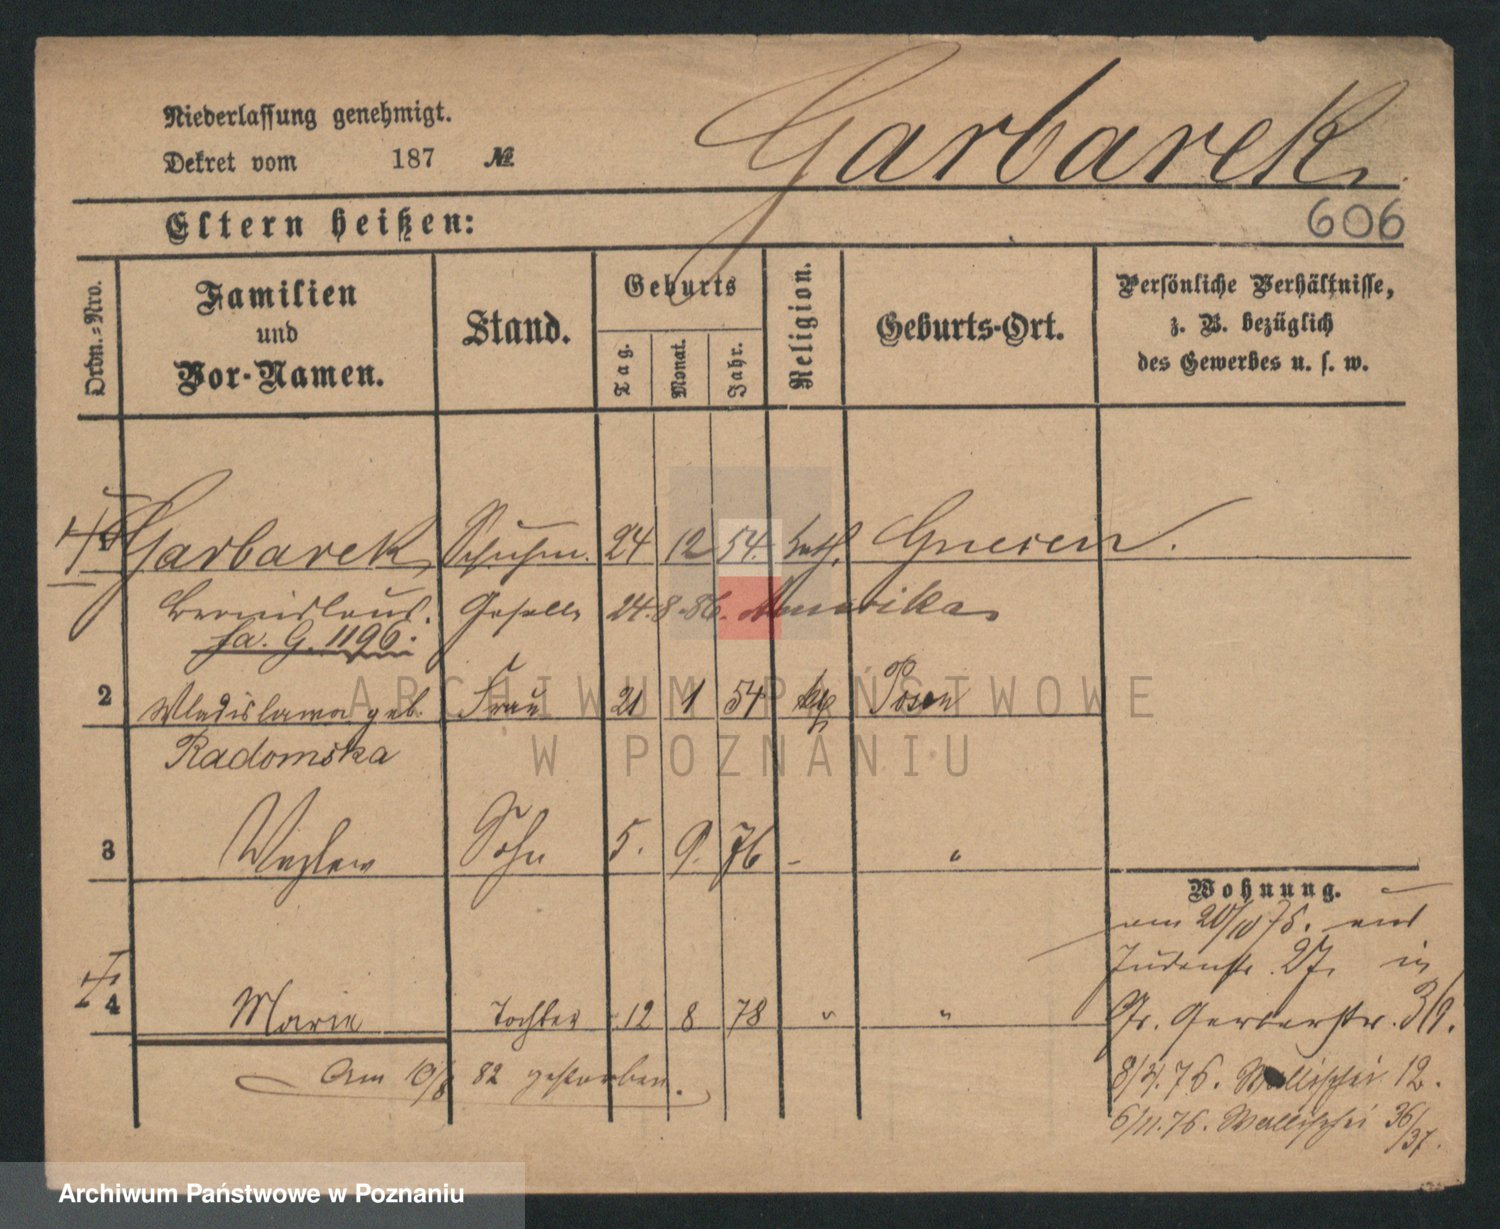 Niederlassung genehmigt.
Dekret vom 187 №
Garbarek
606
Eltern heißen:
Ordn.-Nro.
Familien und Vor-Namen.
Stand.
Geburts
Tag.
Monat.
Jahr.
Religion.
Geburts-Ort.
Persönliche Verhältnisse,
z. B. bezüglich
des Gewerbes u. s. w.
1 Garbarek Schuhm. 24 12 54 kath. Gnesen.
Bronislaus. Geselle 24.8.86. Amerika
fa. G. 1196.
2 Wladislawa geb. Frau 21 1 54 Posen
Radomska
3 Wazlaw Sohn 5. 9. 76 - "
Wohnung.
am 20/10 75. aus
Judenstr. 27. in
4 Marie Tochter 12 8 78 " "
Gr. Gerberstr. 39.
Am 10/8 82 gestorben.
8/4.76. Wallischei 12.
6/11.76. Wallischei 36/37.
ARCHIWUM PAŃSTWOWE
W POZNANIU
Archiwum Państwowe w Poznaniu